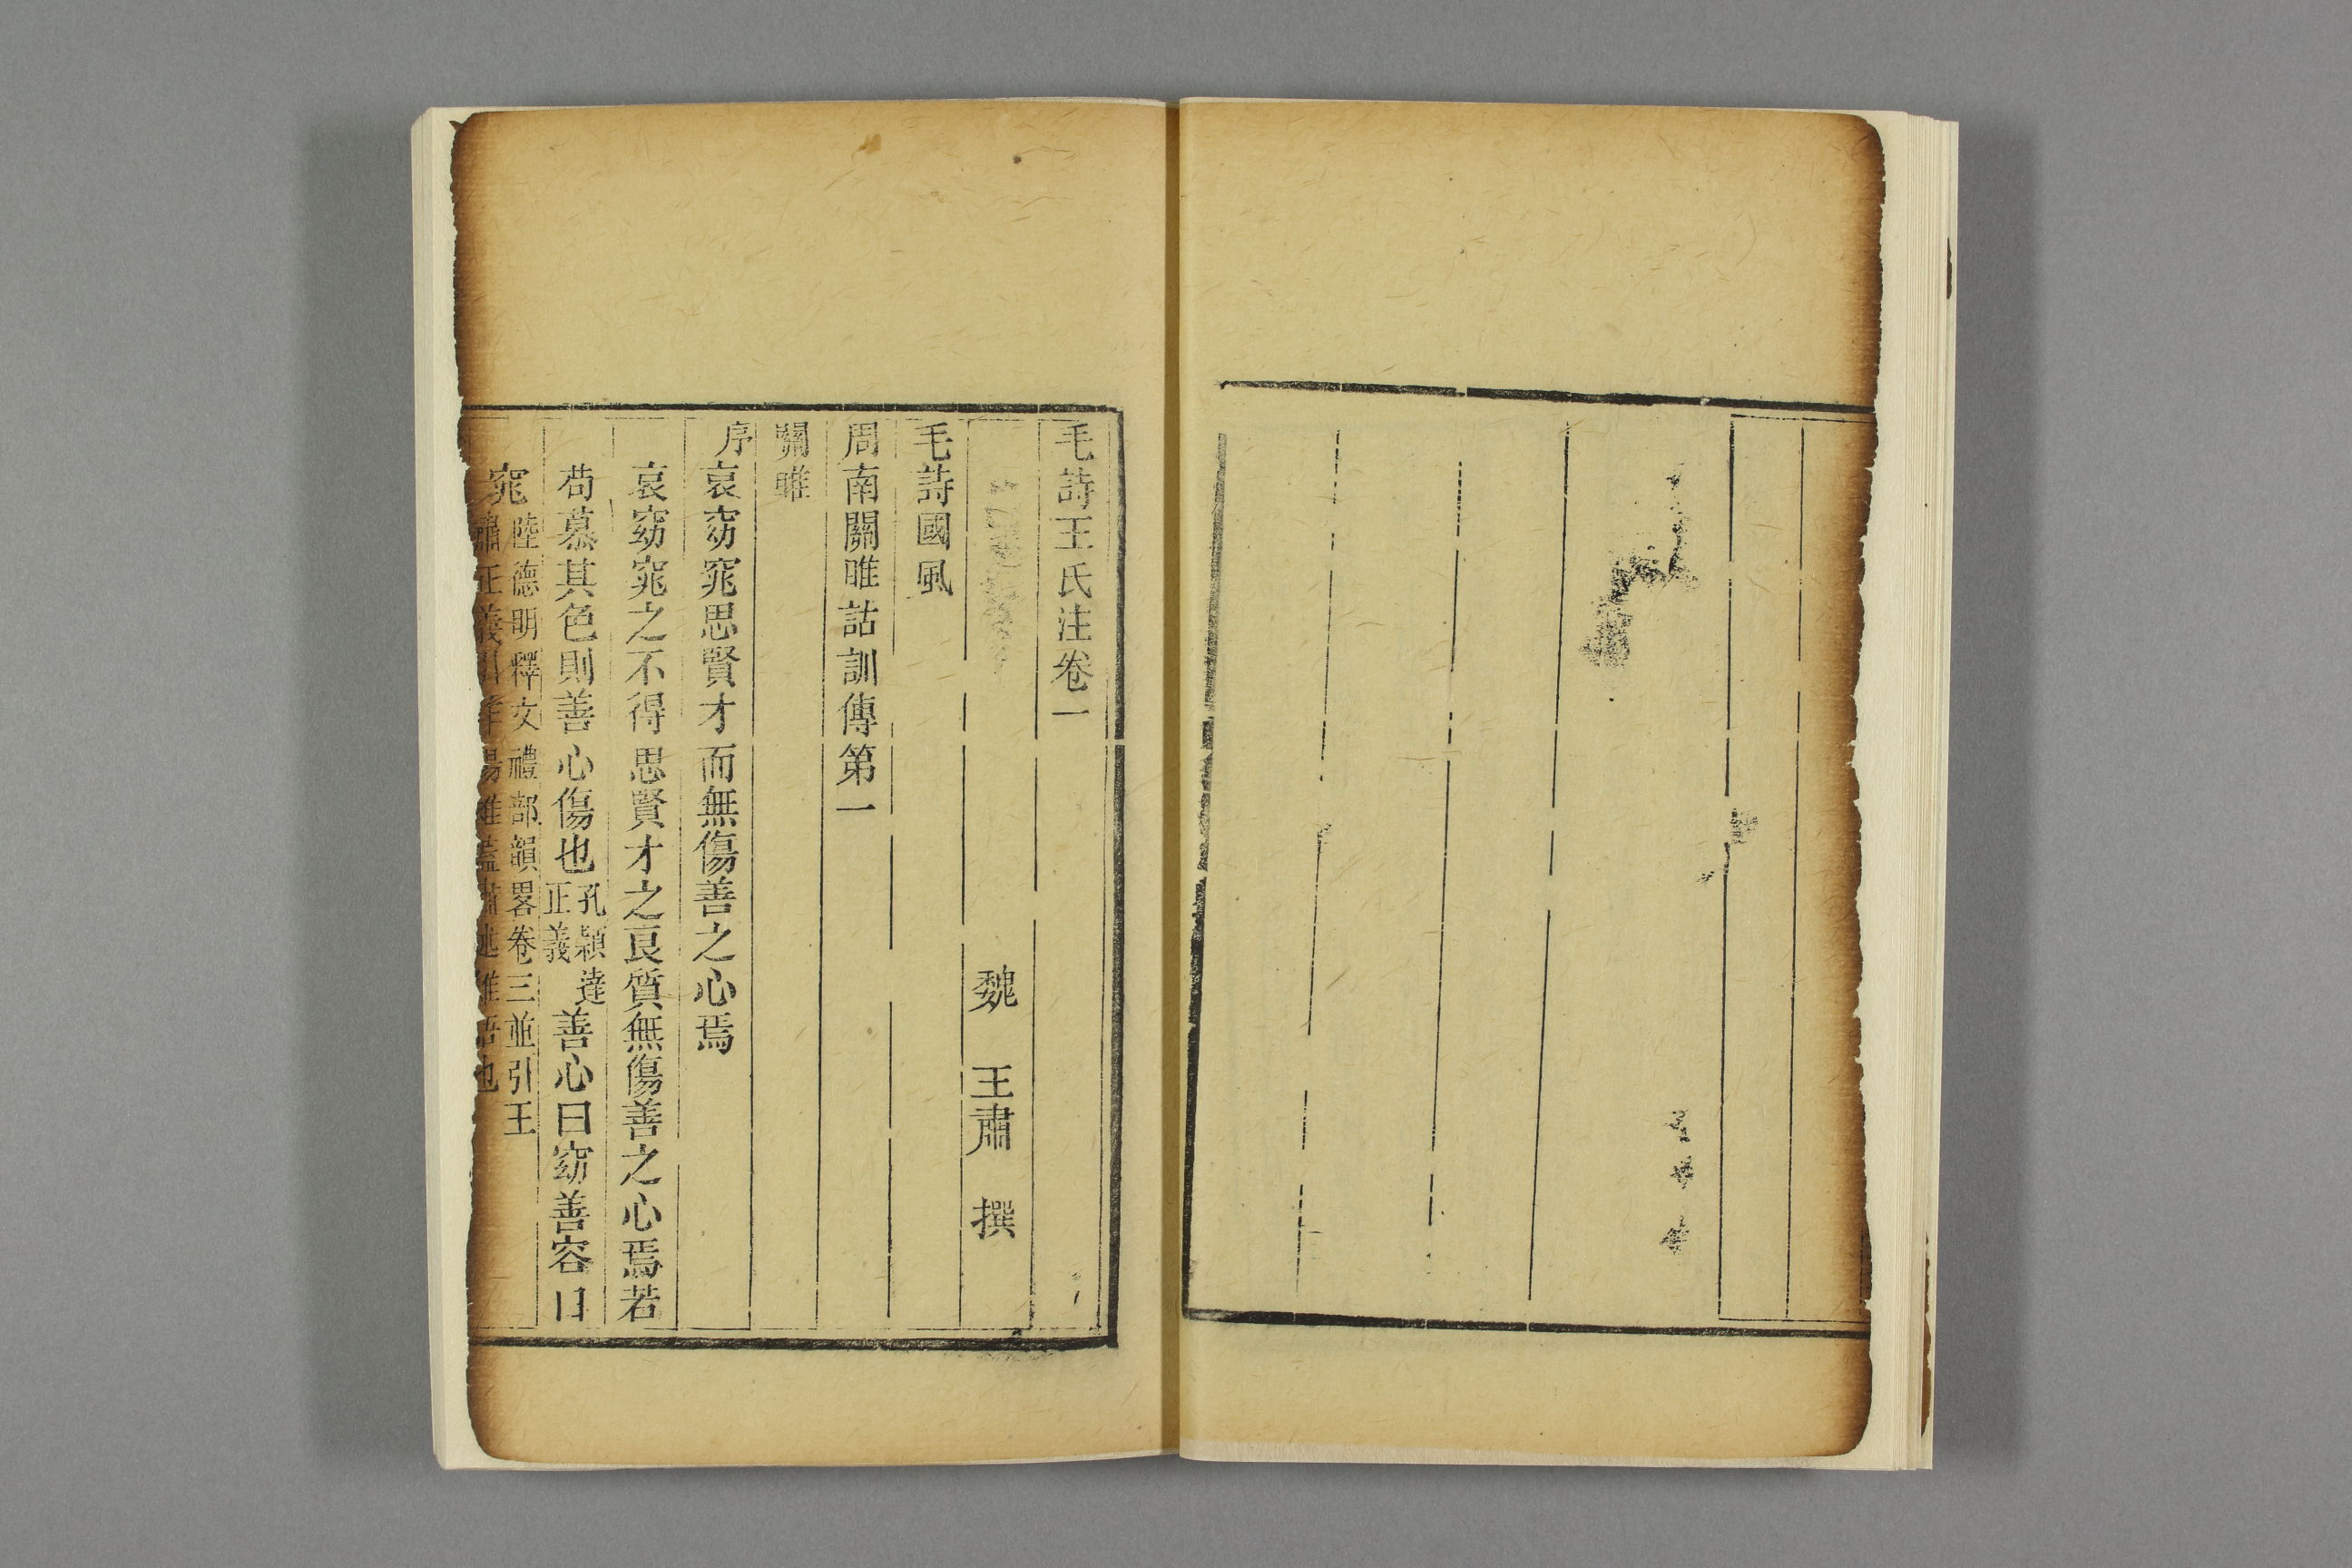 毛詩王氏注卷一
魏　王肅　撰
毛詩國風
周南關雎詁訓傳第一
關雎
序哀窈窕思賢才而無傷善之心焉
哀窈窕之不得思賢才之良質無傷善之心焉若
苟慕其色則善心傷也孔穎達正義善心曰窈善容曰
窕陸德明釋文禮部韻畧卷三並引王肅正義
也